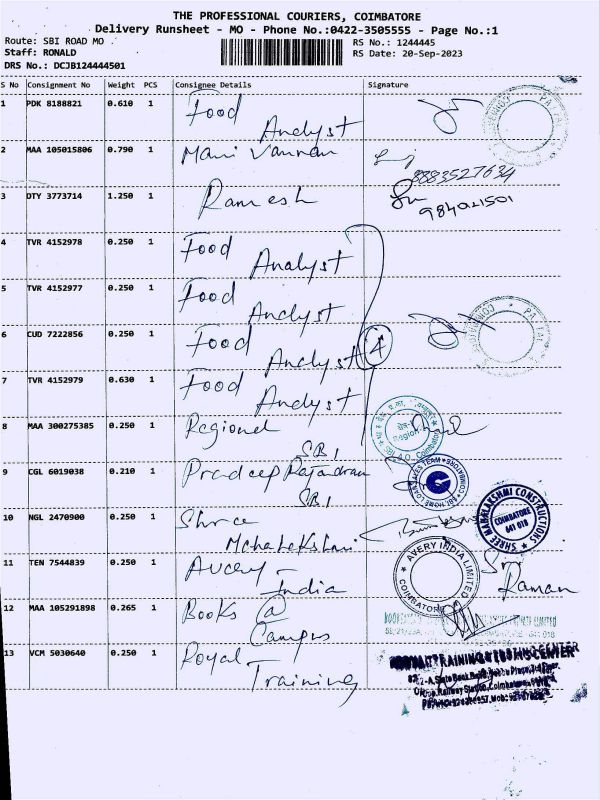 THE PROFESSIONAL COURIERS, COIMBATORE
Delivery Runsheet - MO - Phone No.:0422-3505555 - Page No.:1
Route: SBI ROAD MO . RS No.: 1244445
Staff: RONALD RS Date: 20-Sep-2023
DRS No.: DCJB124444501
S No Consignment No Weight PCS Consignee Details Signature
1 PDK 8188821 0.610 1 Food Analyst
2 MAA 105015806 0.790 1 Mani Vannan
8883527634
3 DTY 3773714 1.250 1 Ramesh
984021501
4 TVR 4152978 0.250 1 Food Analyst
5 TVR 4152977 0.250 1 Food Analyst
6 CUD 7222856 0.250 1 Food Analyst 4
7 TVR 4152979 0.630 1 Food Analyst
8 MAA 300275385 0.250 1 Regional SBI
9 CGL 6019038 0.210 1 Pradeep Rajandran SBI
10 NGL 2470900 0.250 1 Shree Mahalakshmi
SHREE MAHALAKSHMI CONSTRUCTIONS
COIMBATORE
641 018
11 TEN 7544839 0.250 1 Avery India
AVERY INDIA LIMITED
COIMBATORE
Sri Raman
12 MAA 105291898 0.265 1 Books @ Campus
13 VCM 5030640 0.250 1 Royal Training
TRAINING & TESTING CENTER